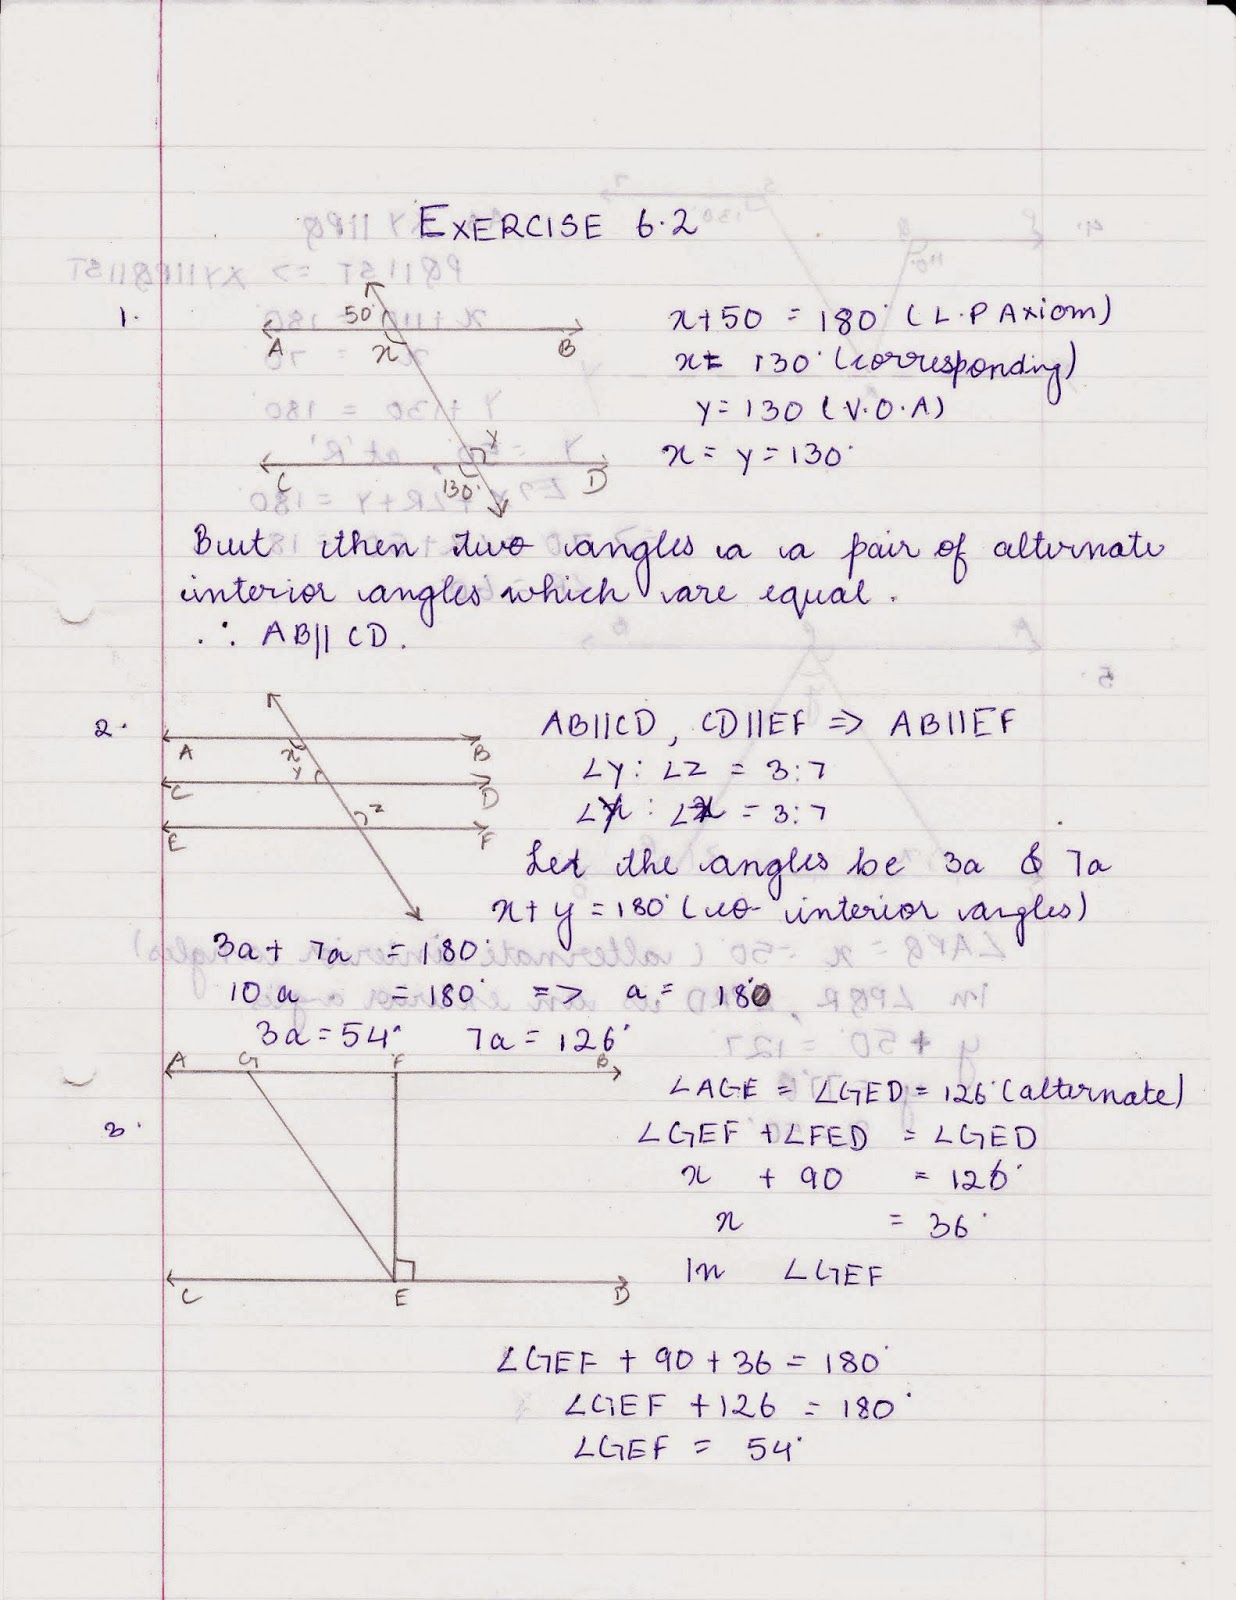 EXERCISE 6.2
1.
50°
A
x
B
y
C
130°
D
x+50 = 180° (L.P Axiom)
x= 130° (corresponding)
y=130 (V.O.A)
x = y = 130°
But then two angles is a pair of alternate
interior angles which are equal.
∴ AB||CD.
2.
A
x
B
y
C
D
z
E
F
AB||CD, CD||EF => AB||EF
∠y : ∠z = 3:7
= 3:7
Let the angles be 3a & 7a
x+ y = 180° (co- interior angles)
3a+ 7a = 180°
10 a = 180° => a = 18°
3a = 54° 7a = 126°
3.
A G F B
C E D
∠AGE = ∠GED = 126° (alternate)
∠GEF + ∠FED = ∠GED
x + 90 = 126°
x = 36°
In ∠GEF
∠GEF + 90 + 36 = 180°
∠GEF + 126 = 180°
∠GEF = 54°